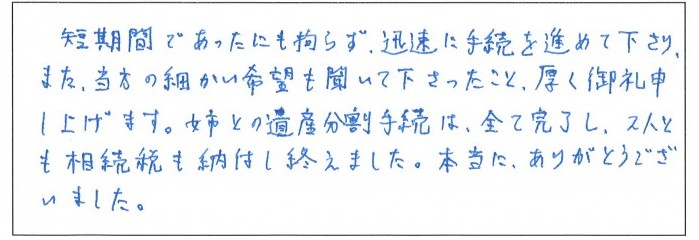 短期間であったにも拘らず、迅速に手続を進めて下さり、
また、当方の細かい希望も聞いて下さったこと、厚く御礼申
し上げます。姉との遺産分割手続は、全て完了し、2人と
も相続税も納付し終えました。本当に、ありがとうござ
いました。